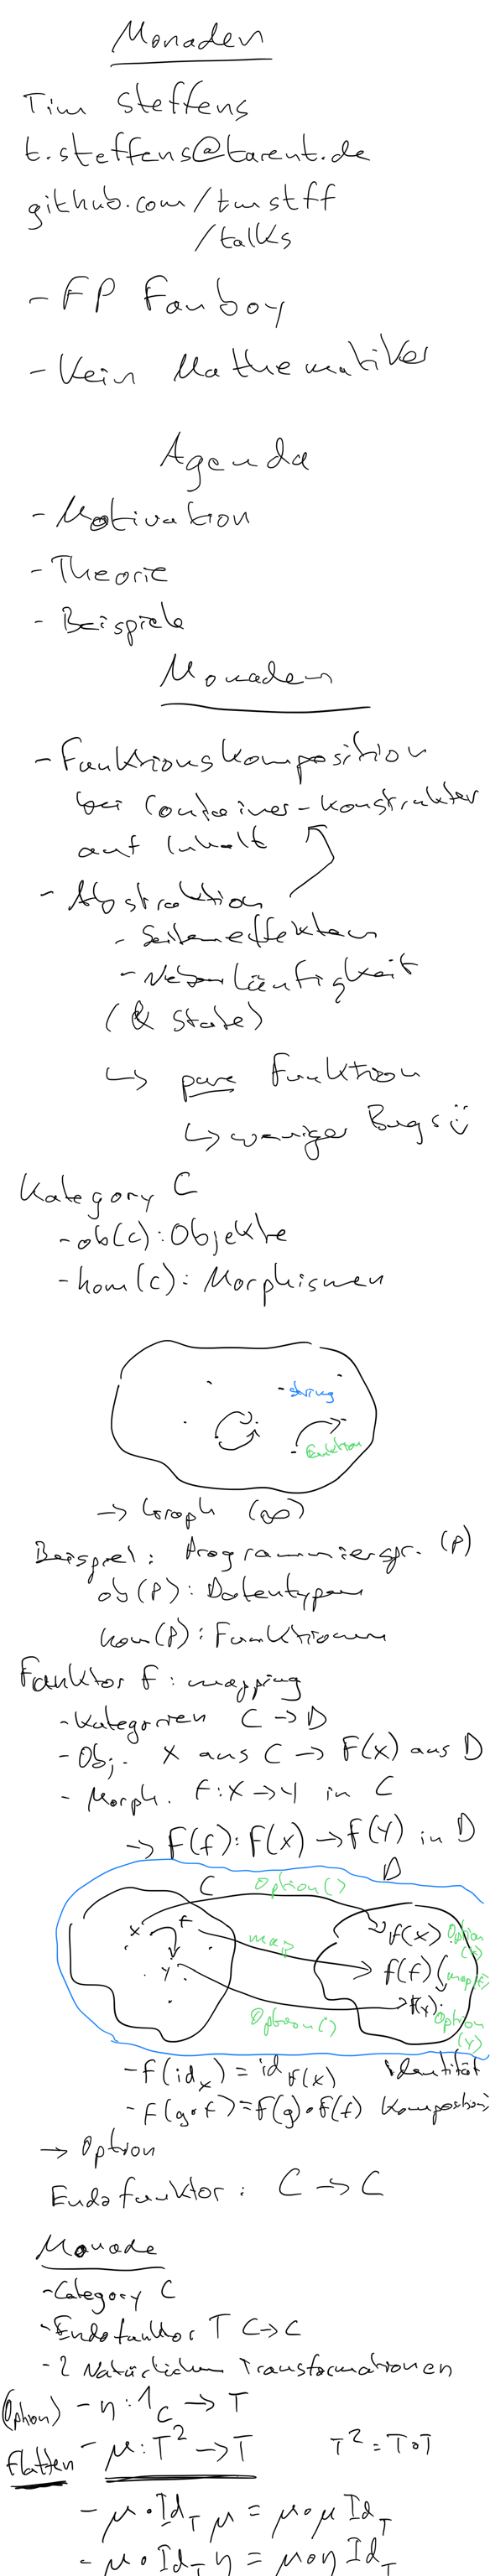 Monaden
Tim Steffens
t.steffens@tarent.de
github.com/tmstff
/talks
- FP Fanboy
- Kein Mathematiker
Agenda
- Motivation
- Theorie
- Beispiele
Monaden
- Funktionskomposition
bei Container-Konstrukten
auf Inhalt
- Abstraktion
- Seiteneffekten
- Nebenläufigkeit
(& State)
↳ pure Funktion
↳ weniger Bugs :)
Kategory C
- ob(C): Objekte
- hom(C): Morphismen
String
Funktion
→ Graph (∞)
Beispiel: Programmierspr. (P)
ob(P): Datentypen
hom(P): Funktionen
Funktor F: mapping
- Kategorien C → D
- Obj. X aus C → F(X) aus D
- Morph. f: X → Y in C
→ F(f): F(X) → F(Y) in D
C Option() D
X f F(X) Option(X)
map F(f) map(f)
Y F(Y) Option(Y)
Option()
- F(id_X) = id_F(X) Identität
- F(g∘f) = F(g)∘F(f) Komposition
→ Option
Endofunktor: C → C
Monade
- Category C
- Endofunktor T C → C
- 2 Natürlichen Transformationen
(Option) - η: 1_C → T
flatten - μ: T² → T T² = T∘T
- μ∘Id_T μ = μ∘μ Id_T
- μ∘Id_T η = μ∘η Id_T